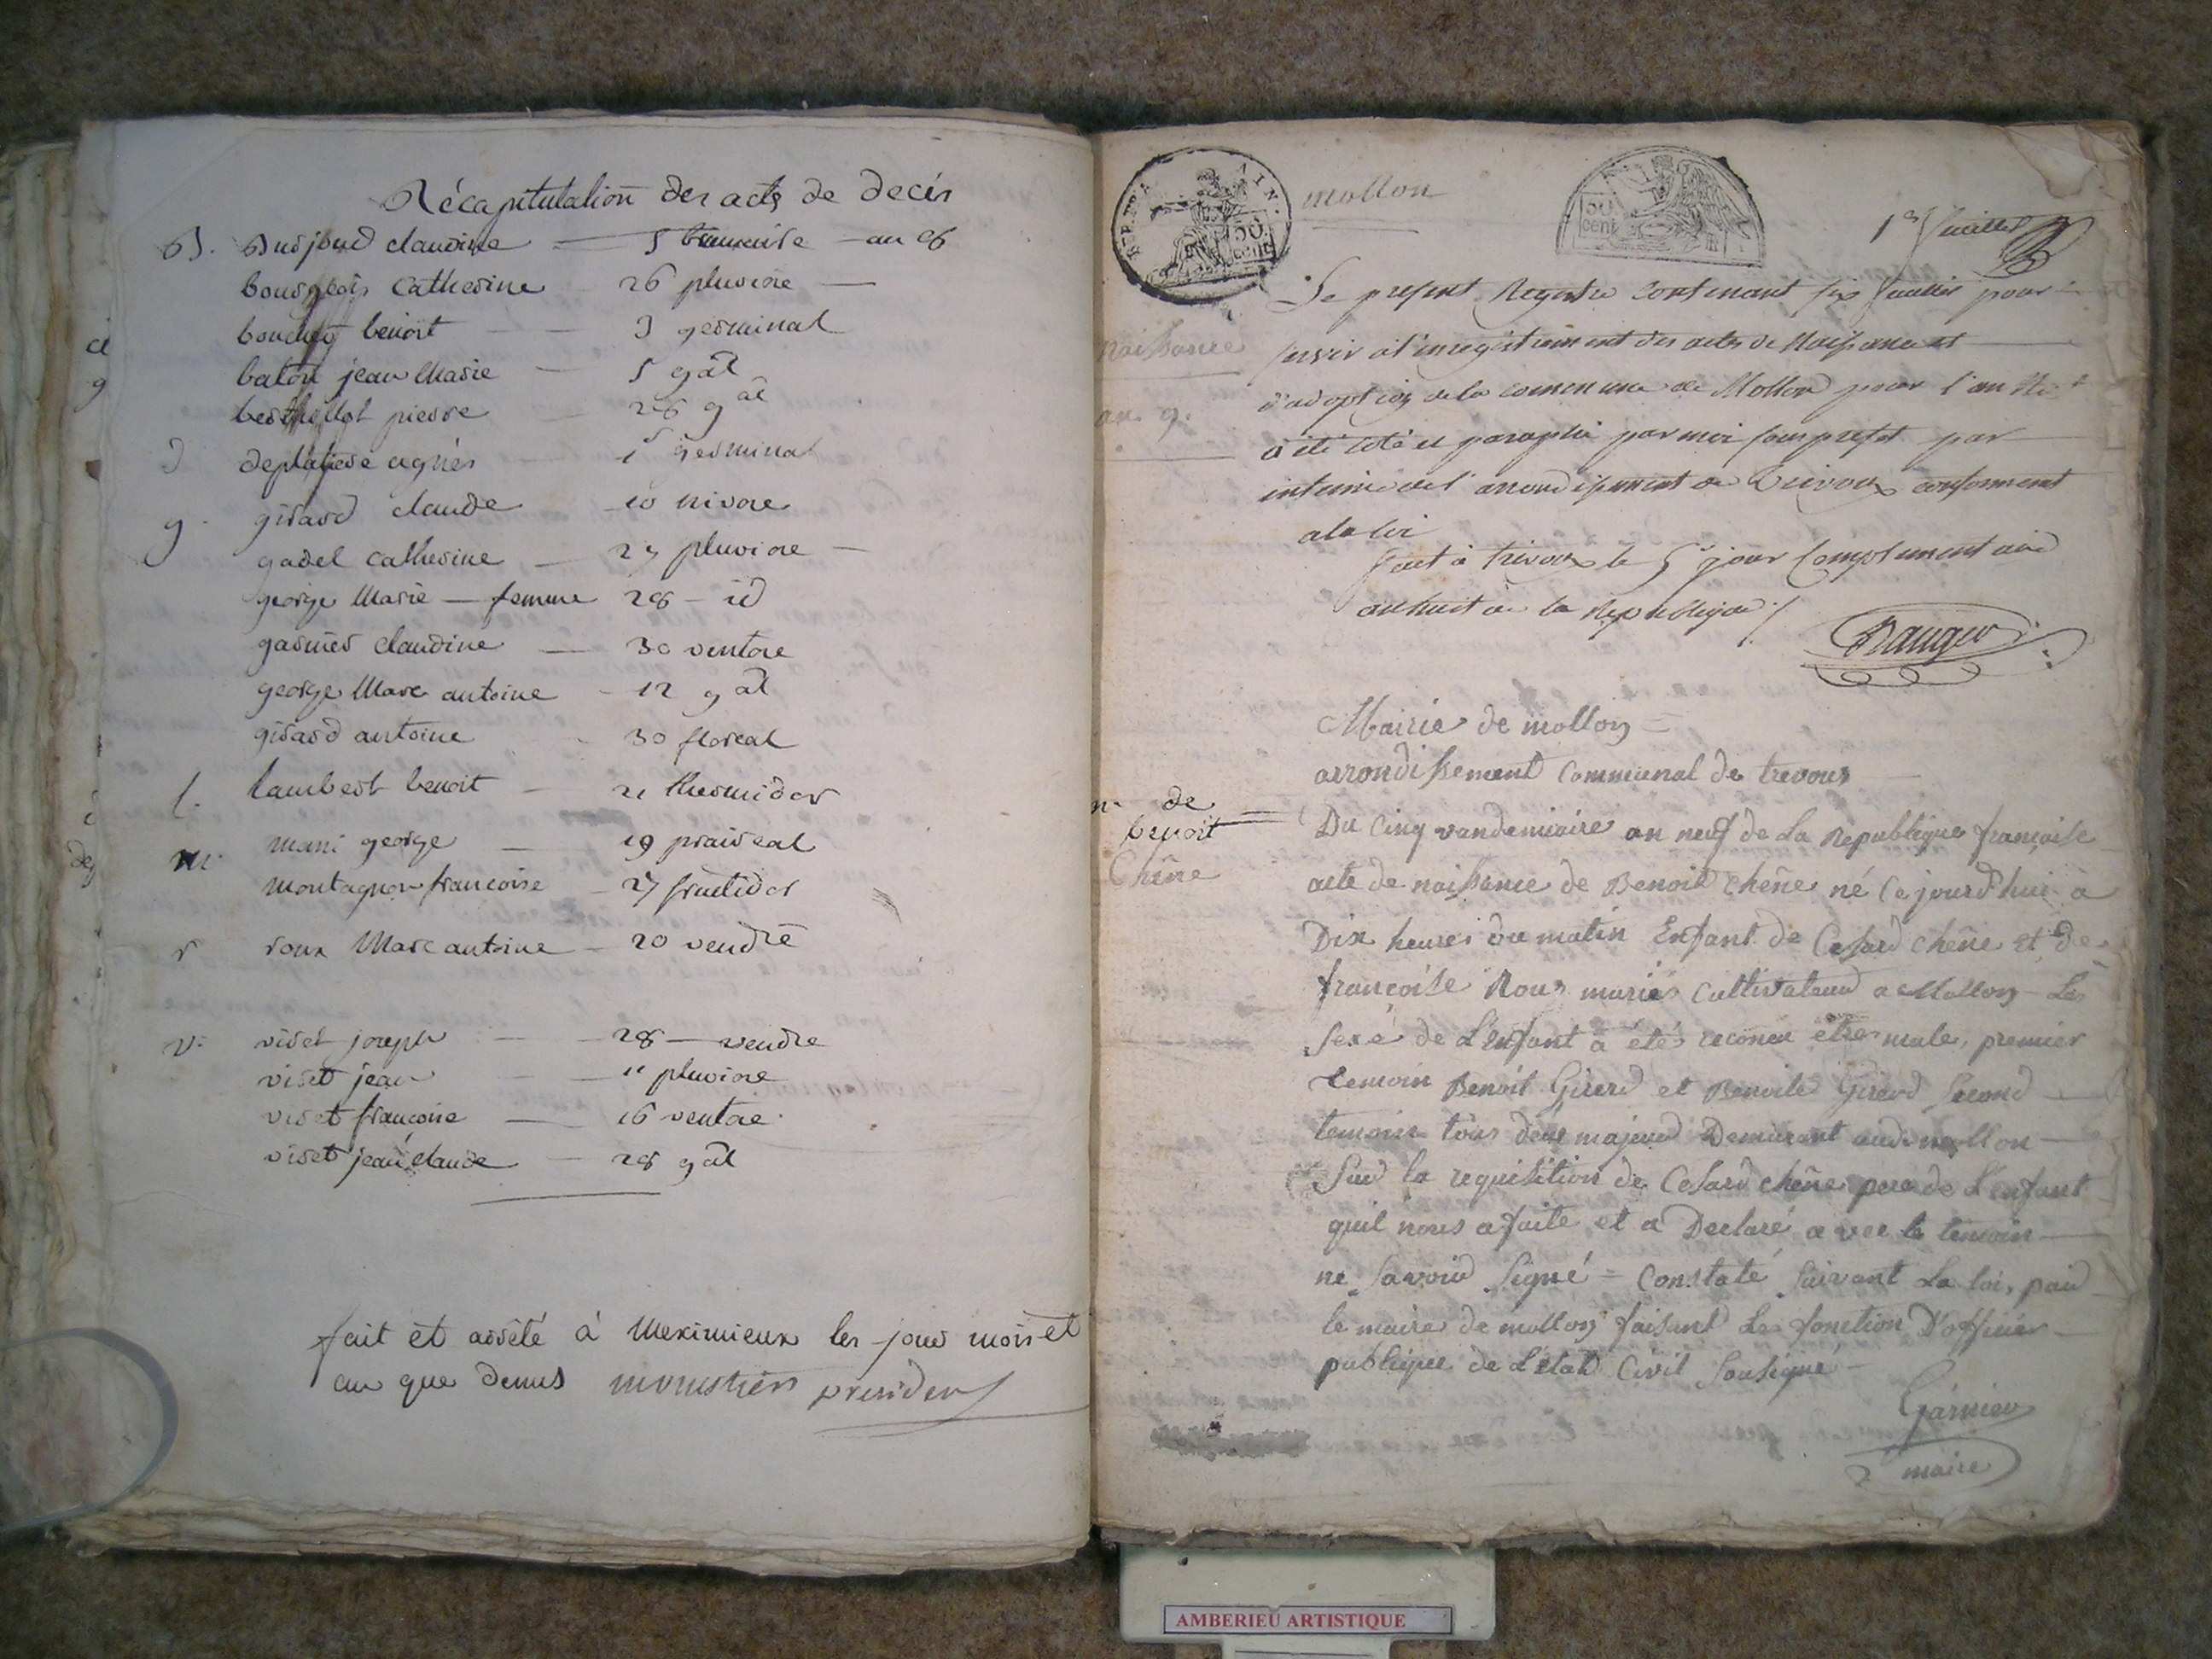 Récapitulation des acts de decès
B. Burjoud claudine — 5 brumaire — an 8
bourgeois Catherine 26 pluviose —
benoit — — 3 germinal
baton jean Marie — 5 gal
berthellot pierre — 28 gal
d deplatiere agnes — 1er germinal
g. girard claude 10 nivose
gadel catherine — 27 pluviose —
george Marie — femme 28 — id
garnier claudine — 30 ventose
george Marc antoine - 12 gal
girard antoine - 30 floreal
l. lambert benoit — 21 thermidor
m. mani george — 19 praireal
montagnon francoise — 27 fructidor
r roux Marc antoine — 20 vendre
v. viret joseph — — 28 — vendre
viret jean — 11 pluviose
viret francoise — 16 ventose.
viret jean claude — 28 gal
fait et arrêté à Meximieux les jour mois et
an que denus monestier president
REP. FRA
50
cent
mollon
50
cent
1er feuillet
Le present Registre Contenant six feuillets pour
Naissance
servir à l'enregistrement des actes de Naissance et
d'adoption de la commune de Mollon pour l'an neuf
an 9.
a été coté et paraphé par moi sous prefet par
interim de l'arrondissement de Trevoux conformement
a la loi
fait à trevoux le 5e jour Complementaire
an huit de la Republique ./.
Mairie de mollon =
arrondissement Communal de trevoux
n. de
benoit
Chêne
Du Cinq vandemiaire an neuf de La Republique françaisse
acte de naissance de Benoit chêne né Ce jourd'hui à
Dix heures du matin Enfant de Cesard chêne et de
françoise Roux mariés Cultivateurd a Mollon Le
sexe de L'enfant a été reconeu etre male, premier
temoin Benoit Girerd et Benoite Girerd second
temoin tous deux majeurd Demeurant audi mollon
Surd la requisition de Cesard chêne pere de L'enfant
quil nous a faite et a Declaré avec le temoin
ne Savoird Signé = Constaté Suivant La loi, pard
le maire de mollon faisant Les fonction D'officier
publique de L'état Civil Sousigné
Garnier
maire
AMBERIEU ARTISTIQUE